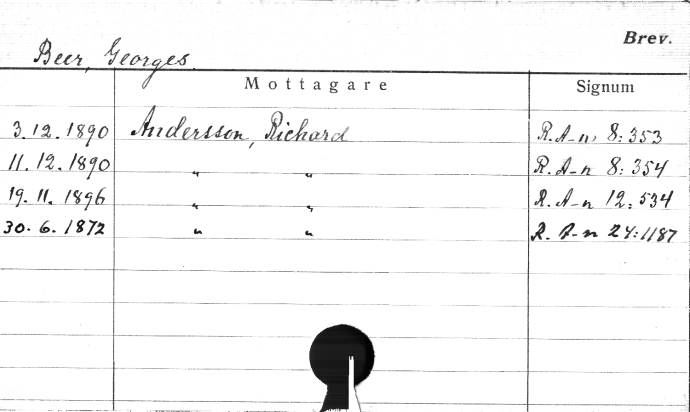 Brev.
Beer, Georges.
Mottagare Signum
3.12.1890 Andersson, Richard R. A-n, 8:353
11.12.1890 " " R. A-n 8:354
19.11.1896 " " R. A-n 12:534
30.6.1872 " " R. A-n 24:1187